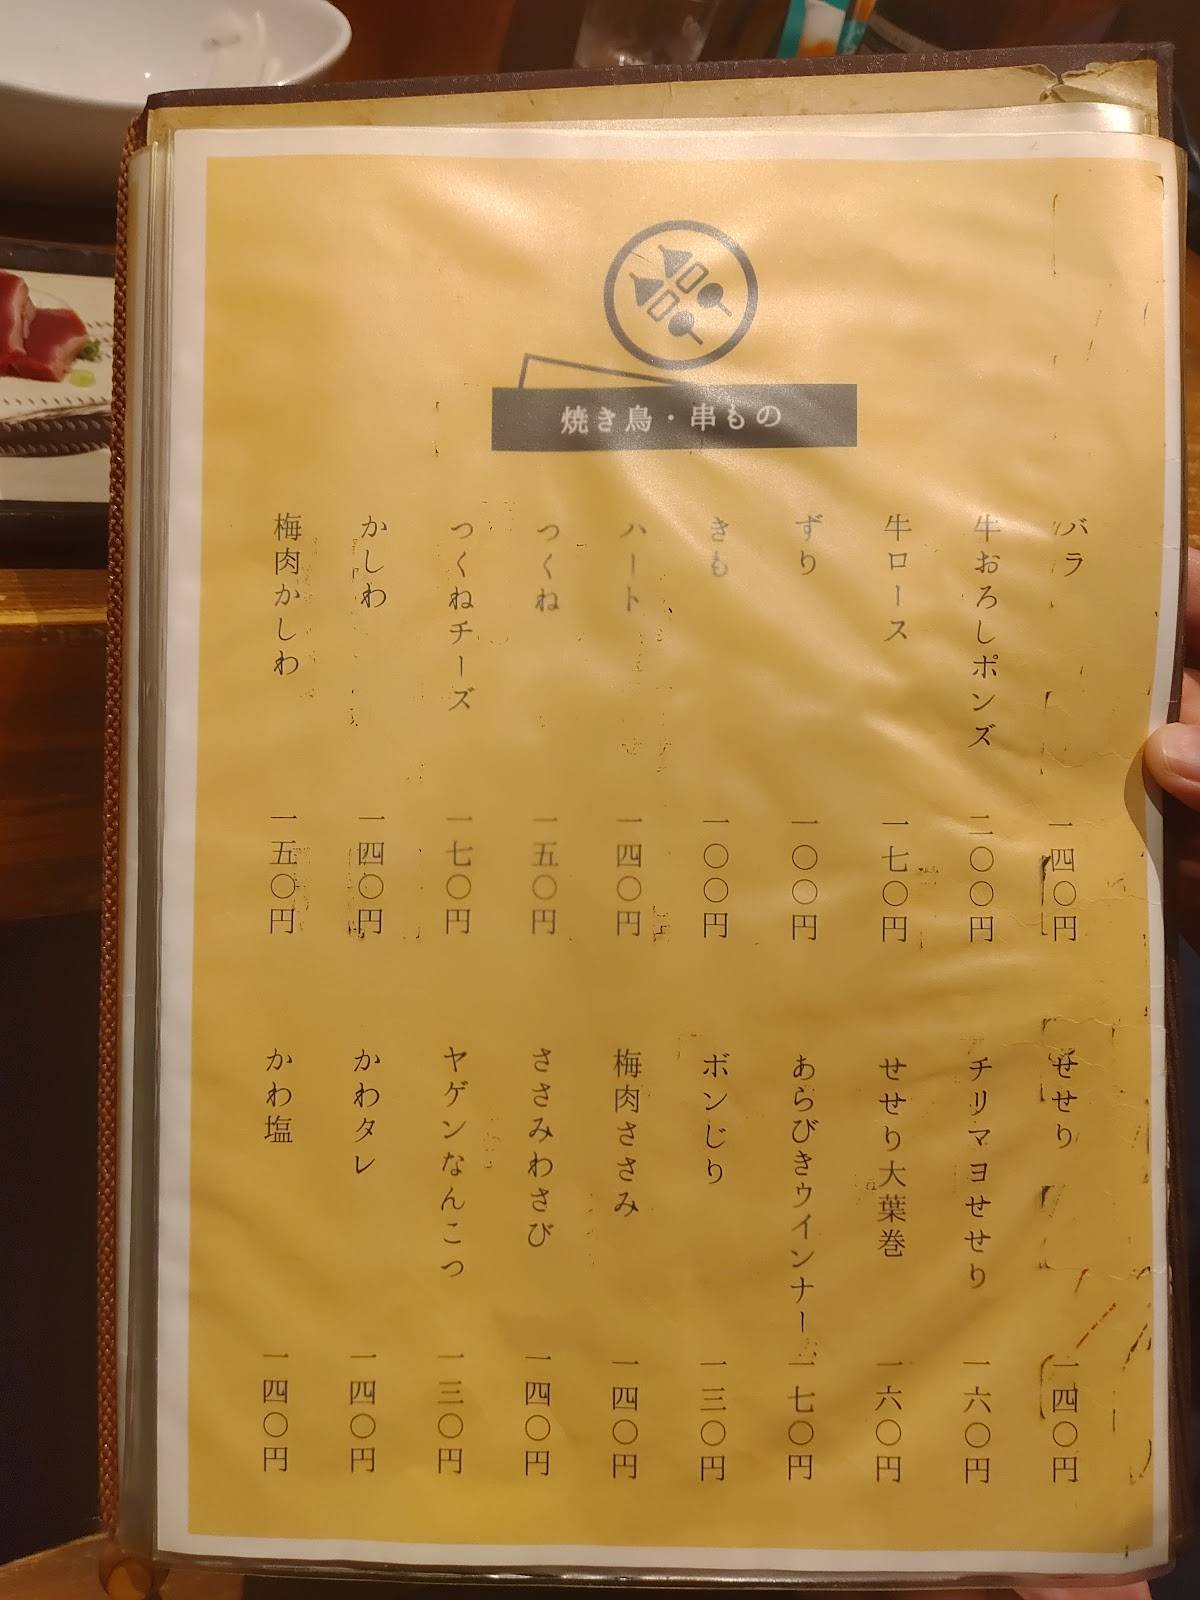 焼き鳥・串もの
バラ 一四〇円
牛おろしポンズ 二〇〇円
牛ロース 一七〇円
ずり 一〇〇円
きも 一〇〇円
ハート 一四〇円
つくね 一五〇円
つくねチーズ 一七〇円
かしわ 一四〇円
梅肉かしわ 一五〇円
せせり 一四〇円
チリマヨせせり 一六〇円
せせり大葉巻 一六〇円
あらびきウインナー 一七〇円
ボンじり 一三〇円
梅肉ささみ 一四〇円
ささみわさび 一四〇円
ヤゲンなんこつ 一三〇円
かわタレ 一四〇円
かわ塩 一四〇円